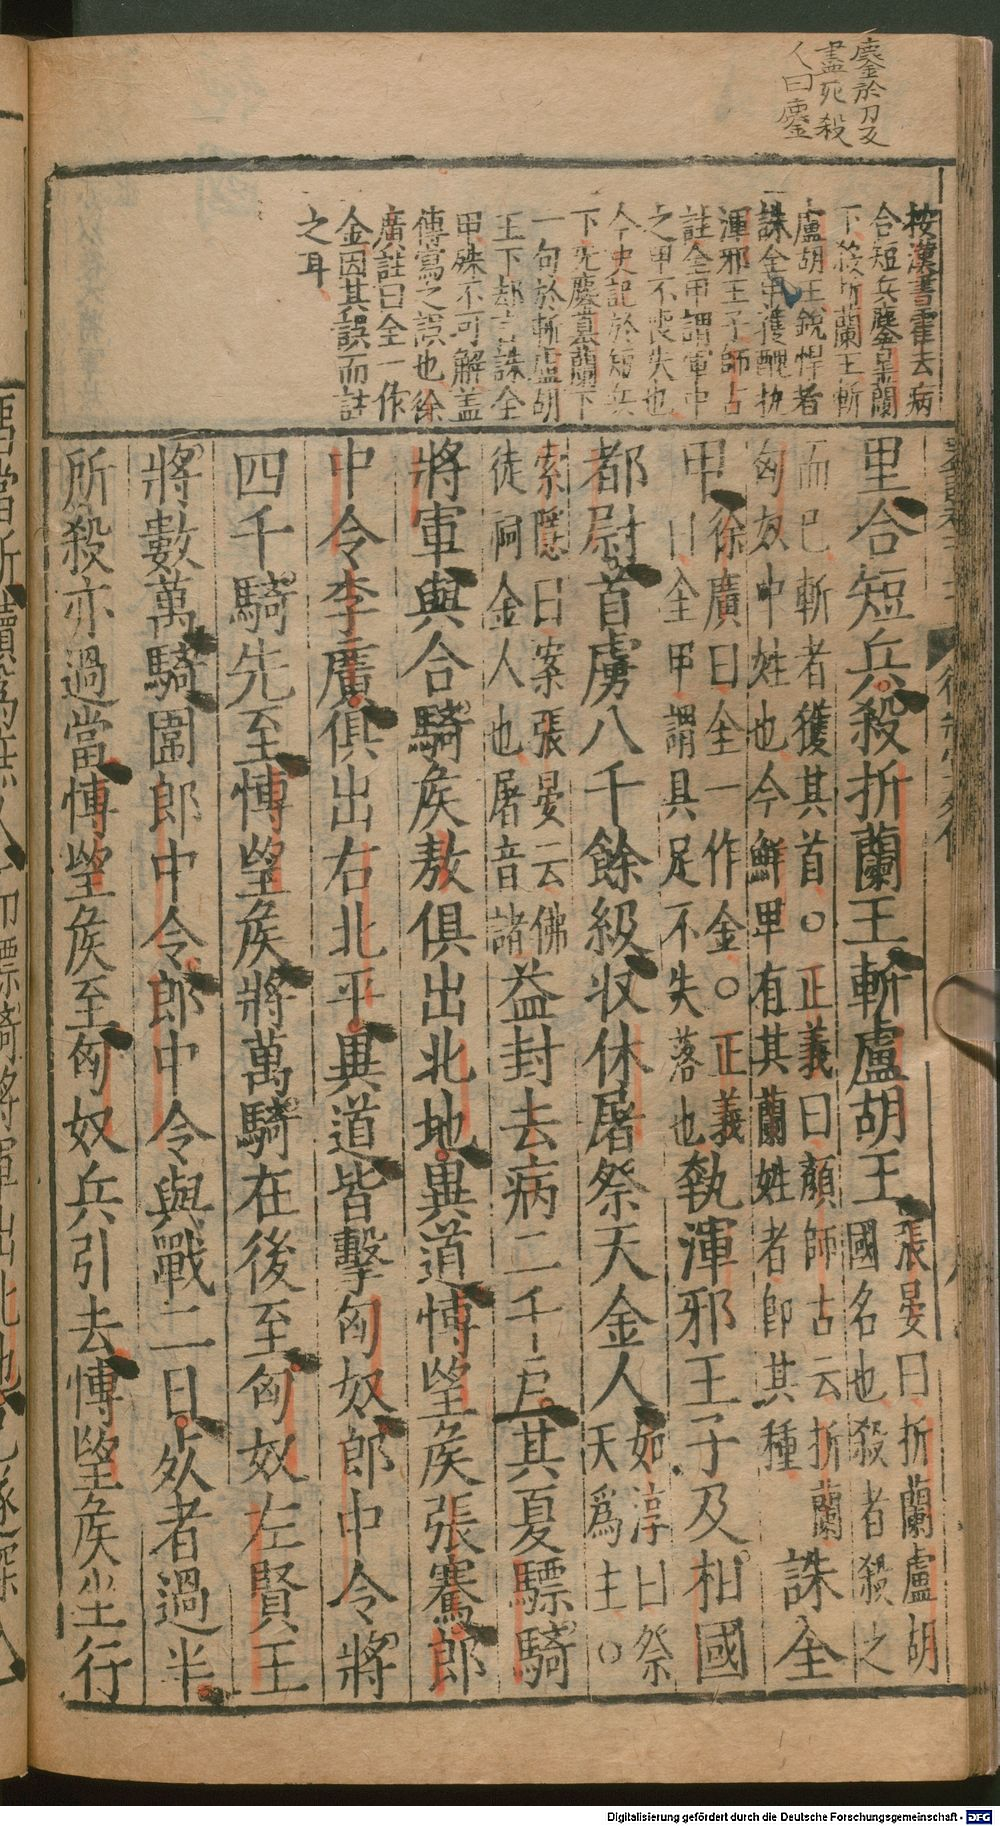 鏖於刀反
盡死殺
人曰鏖
按漢書霍去病
合短兵鏖皋蘭
下殺折蘭王斬
盧胡王銳悍者
誅全甲獲醜執
渾邪王子師古
註全甲謂軍中
之甲不喪失也
今史記於短兵
下无鏖皋蘭下
一句於斬盧胡
王下却言誅全
甲殊不可解盖
傳寫之誤也徐
廣註曰全一作
金因其誤而註
之耳
里合短兵殺折蘭王斬盧胡王張晏曰折蘭盧胡國名也殺者殺之
而已斬者獲其首○正義曰顏師古云折蘭匈奴中姓也今鮮卑有其蘭姓者即其種誅全
甲徐廣曰全一作金○正義曰全甲謂具足不失落也執渾邪王子及相國
都尉首虜八千餘級收休屠祭天金人如淳曰祭天爲主○
索隱曰案張晏云佛徒祠金人也屠音諸益封去病二千戶其夏驃騎
將軍與合騎侯敖俱出北地異道愽望侯張騫郎
中令李廣俱出右北平異道皆擊匈奴郎中令將
四千騎先至愽望侯將萬騎在後至匈奴左賢王
將數萬騎圍郎中令郎中令與戰二日死者過半
所殺亦過當愽望侯至匈奴兵引去愽望侯坐行
Digitalisierung gefördert durch die Deutsche Forschungsgemeinschaft - DFG